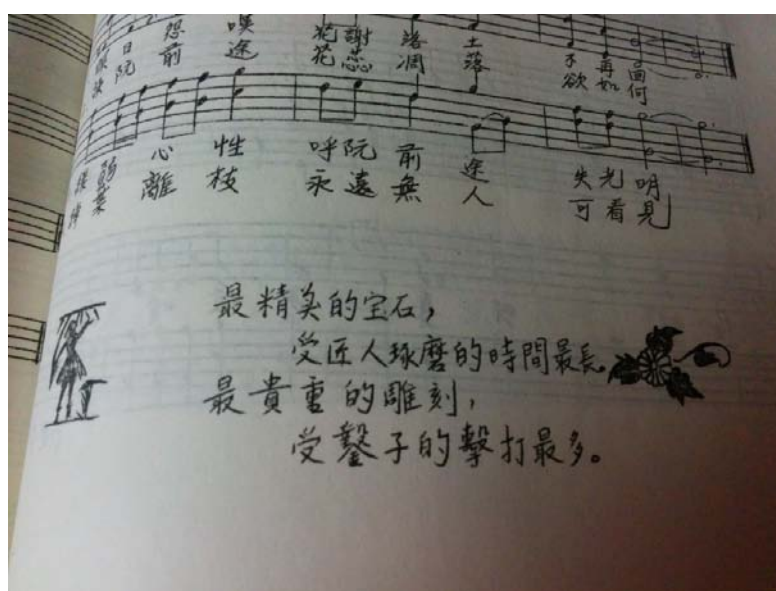 日 怨 嘆 花 謝 落 土 不 再 回
阮 前 途 花 蕊 凋 落 欲 如 何
弱 心 性 呼 阮 前 途 失 光 明
葉 離 枝 永 遠 無 人 可 看 見
最精美的宝石，
受匠人琢磨的時間最長。
最貴重的雕刻，
受鑿子的擊打最多。